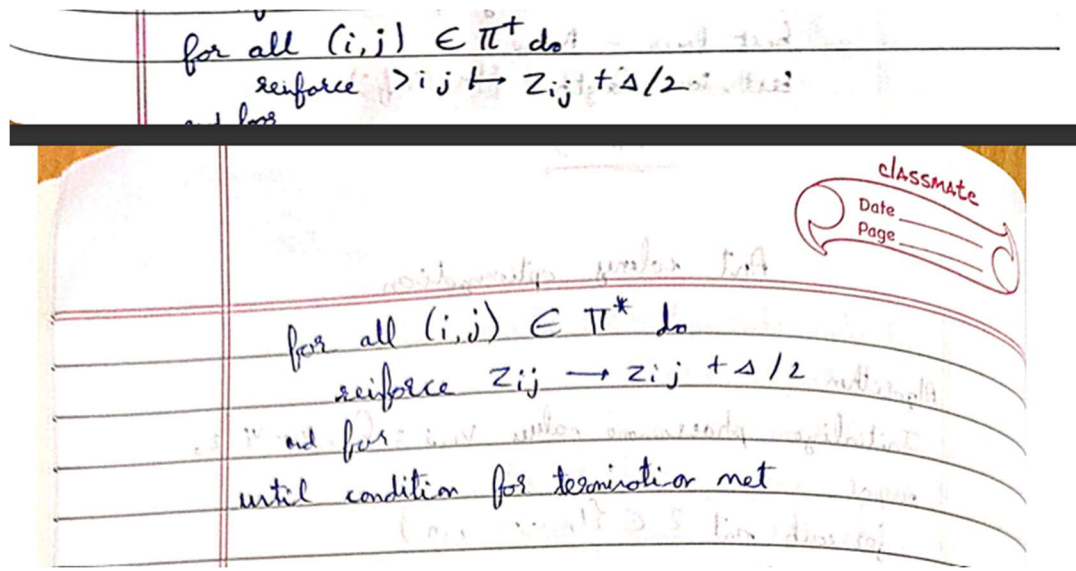 for all (i,j) ∈ π⁺ do
reinforce >ij ↦ Zij + Δ/2 ;
end for
classmate
Date
Page
for all (i,j) ∈ π* do
reiforce Zij → Zij + Δ/2
end for
until condition for termination met